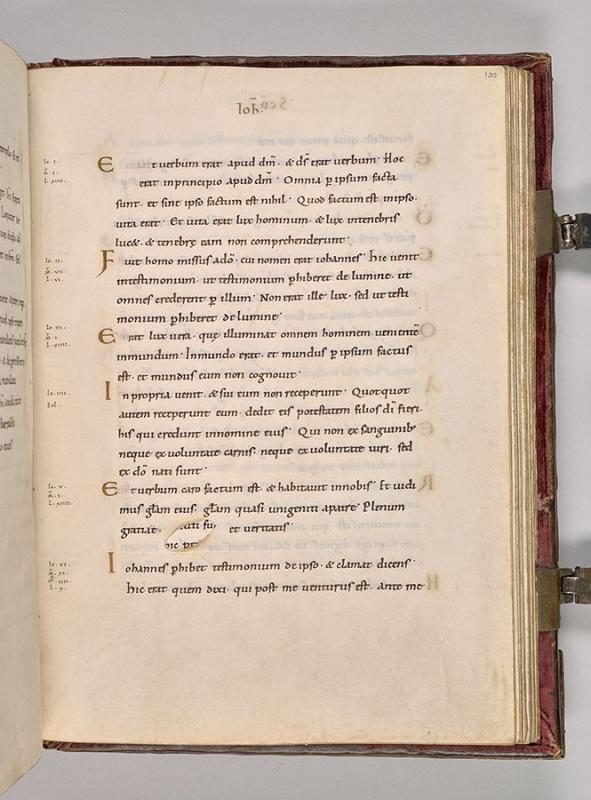 130
Ioh̄.
Et verbum erat apud dm̄. & ds̄ erat verbum. Hoc
erat inprincipio apud dm̄. Omnia p̱ ipsum facta
sunt. et sine ipso factum est nihil. Quod factum est inipso.
uita erat. Et uita erat lux hominum. & lux intenebris
lucet. & tenebrę eam non comprehenderunt.
Fuit homo missus adō. cui nomen erat iohannes. hic uenit
intestimonium. ut testimonium p̱hiberet de lumine. ut
omnes crederent p̱ illum. Non erat ille lux. sed ut testi
monium p̱hiberet de lumine.
Erat lux uera. quę illuminat omnem hominem uenientē
inmundum. Inmundo erat. et mundus p̱ ipsum factus
est. et mundus eum non cognouit.
In propria uenit. & sui eum non receperunt. Quotquot
autem receperunt eum. dedit eis potestatem filios dī fieri.
his qui credunt innomine eius. Qui non ex sanguinib;
neque ex uoluntate carnis. neque ex uoluntate uiri. sed
ex dō nati sunt.
Et uerbum caro factum est. & habitauit innobis. Et uidi
mus gl̄am eius. gl̄am quasi unigeniti apatre. Plenum
gratiae. et ueritatis.
Iohannes p̱hibet testimonium de ipso. & clamat dicens.
hic erat quem dixi. qui post me uenturus est. ante me
Io. I.
Io. II.
Io. III.
Io. IIII.
Sol.
Io. V.
Io. VI.